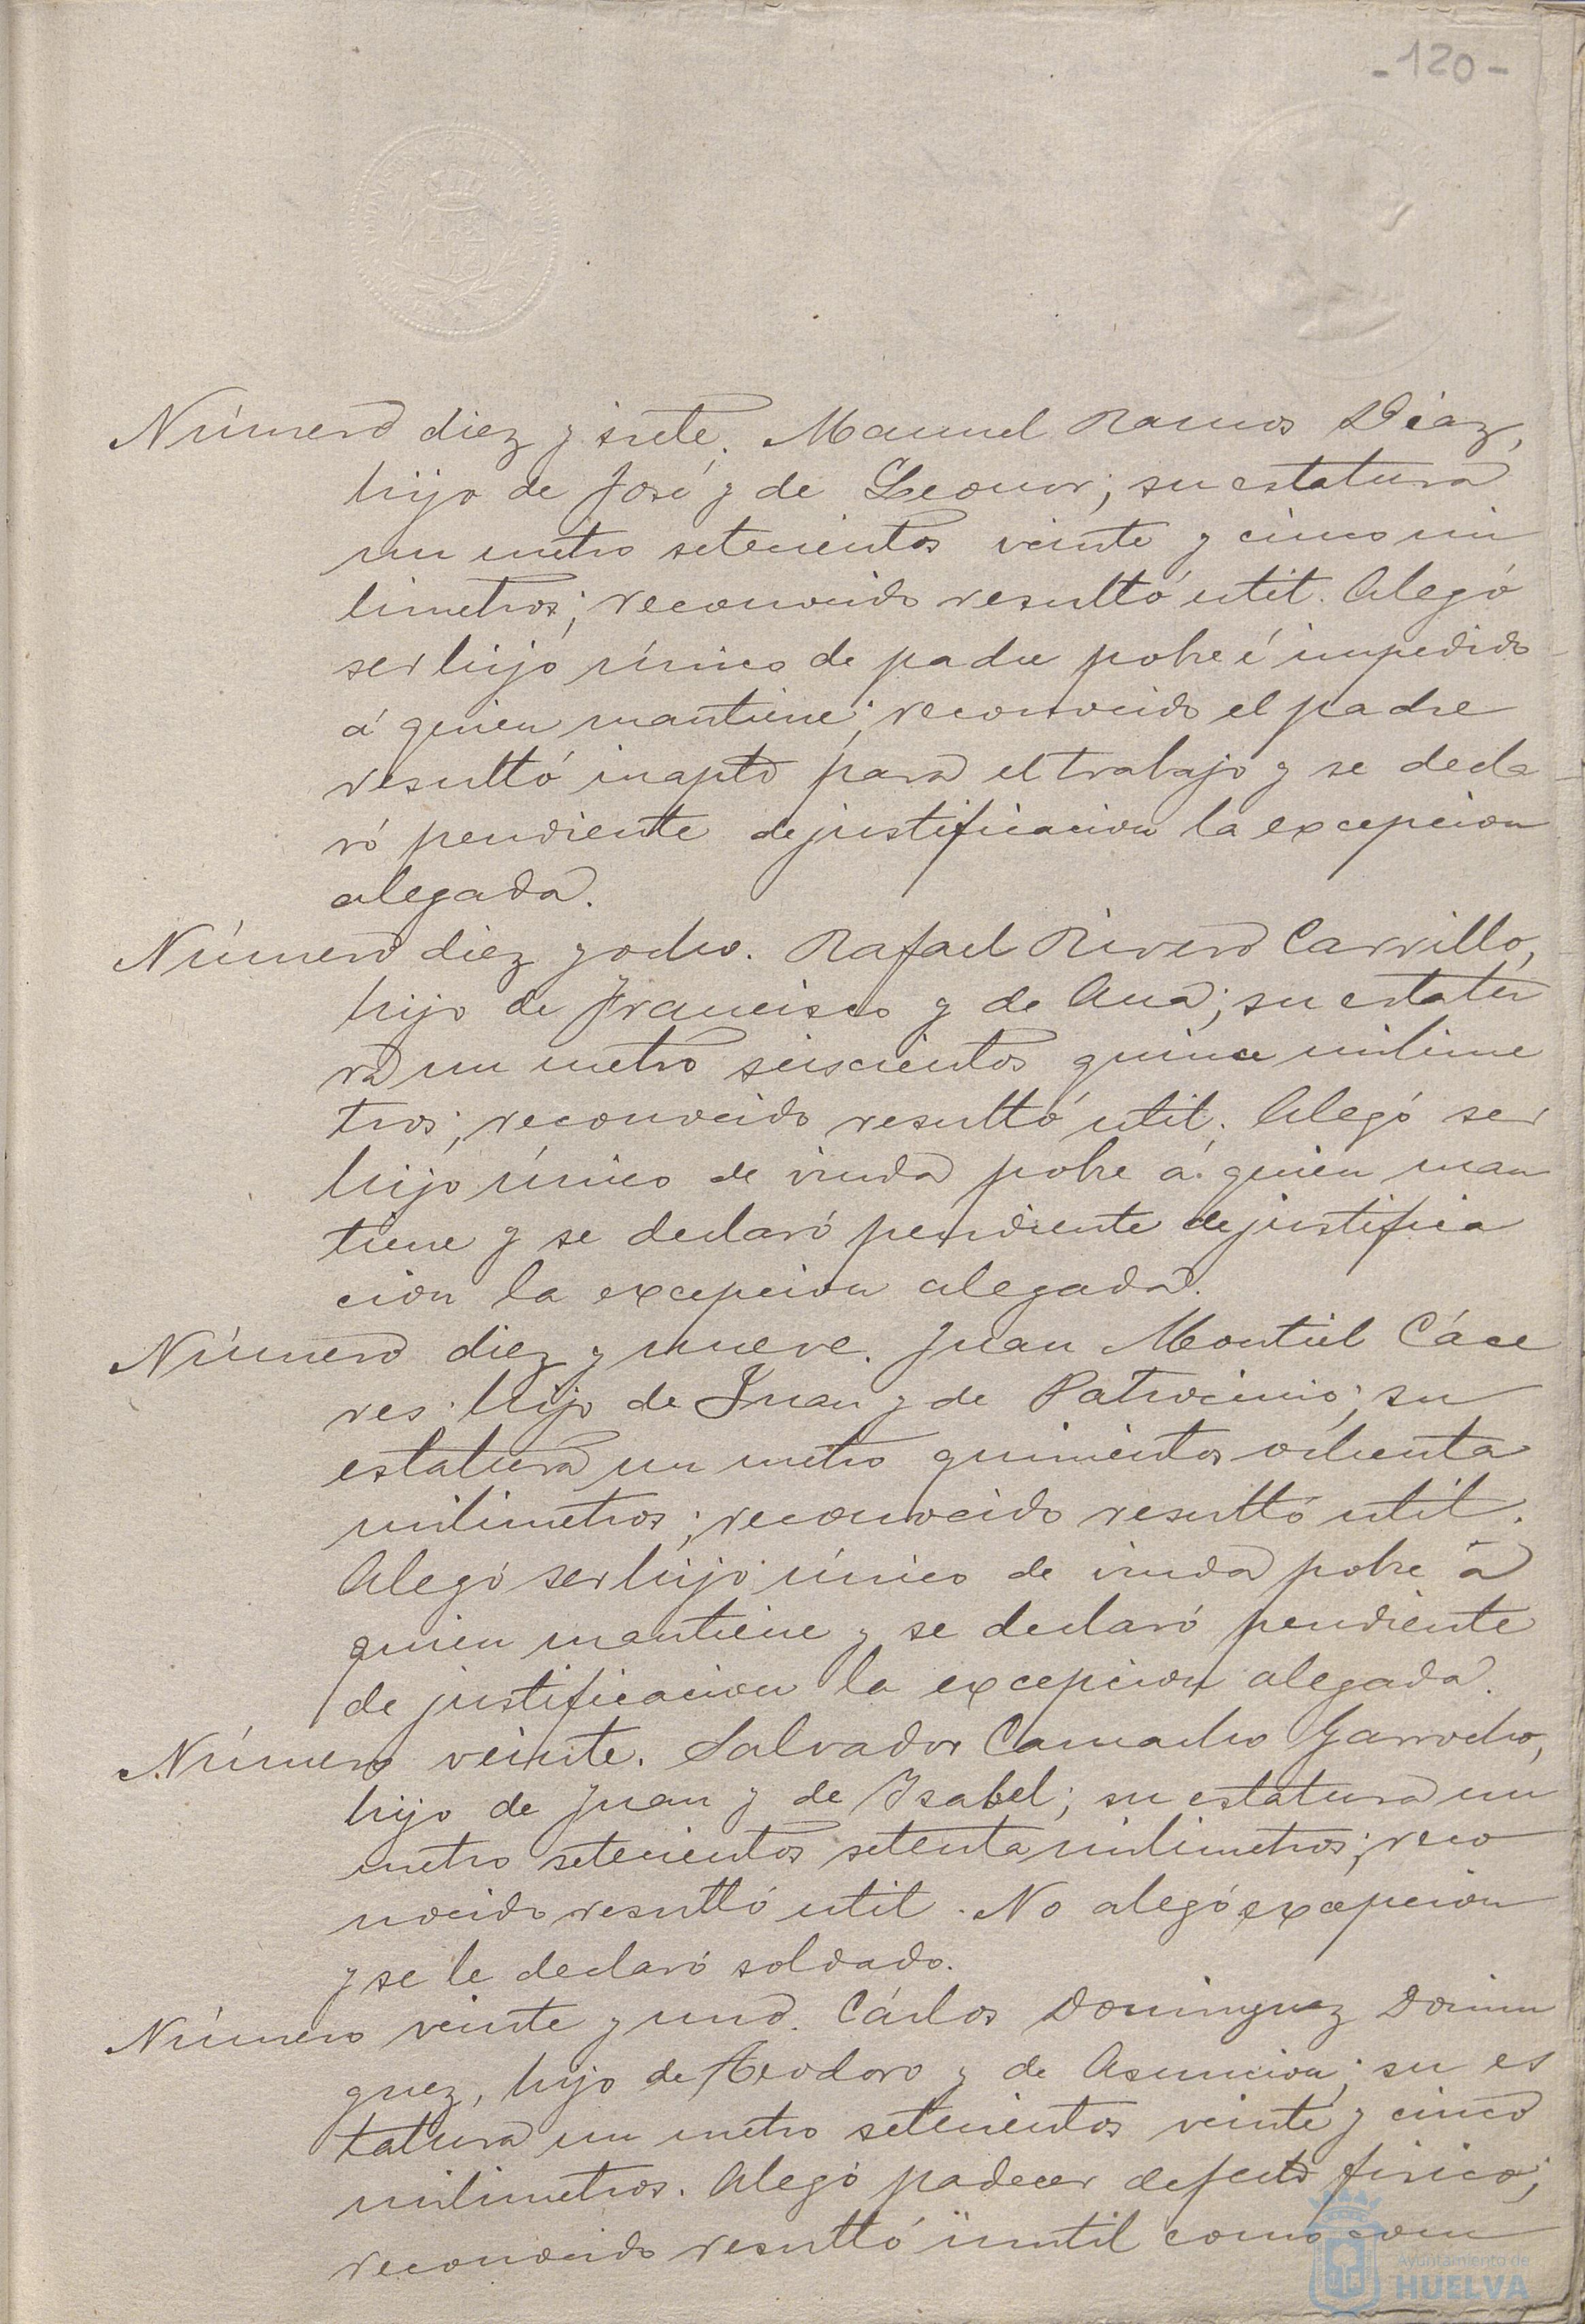 -120-
Número diez y siete. Manuel Ramos Diaz,
hijo de José y de Leonor; su estatura
un metro setecientos veinte y cinco mi
limetros; reconocido resultó util. Alegó
ser hijo único de padre pobre é impedido
á quien mantiene; reconocido el padre
resultó inapto para el trabajo y se decla
ró pendiente de justificacion la excepcion
alegada.
Número diez y ocho. Rafael Rivero Carrillo,
hijo de Francisco y de Ana; su estatu
ra un metro seiscientos quince milime
tros; reconocido resultó util. Alegó ser
hijo único de viuda pobre á quien man
tiene y se declaró pendiente de justifica
cion la excepcion alegada.
Número diez y nueve. Juan Montiel Cáce
res. hijo de Juan y de Patrocinio; su
estatura un metro quinientos ochenta
milimetros; reconocido resultó util.
Alegó ser hijo único de viuda pobre á
quien mantiene y se declaró pendiente
de justificacion la excepcion alegada.
Número veinte. Salvador Camacho Garrocho,
hijo de Juan y de Isabel; su estatura un
metro setecientos setenta milimetros; reco
nocido resultó util. No alegó excepcion
y se le declaró soldado.
Número veinte y uno. Cárlos Dominguez Domin
guez, hijo de Teodoro y de Asuncion; su es
tatura un metro setecientos veinte y cinco
milimetros. Alegó padecer defecto fisico;
reconocido resultó inutil como com
Ayuntamiento de
HUELVA